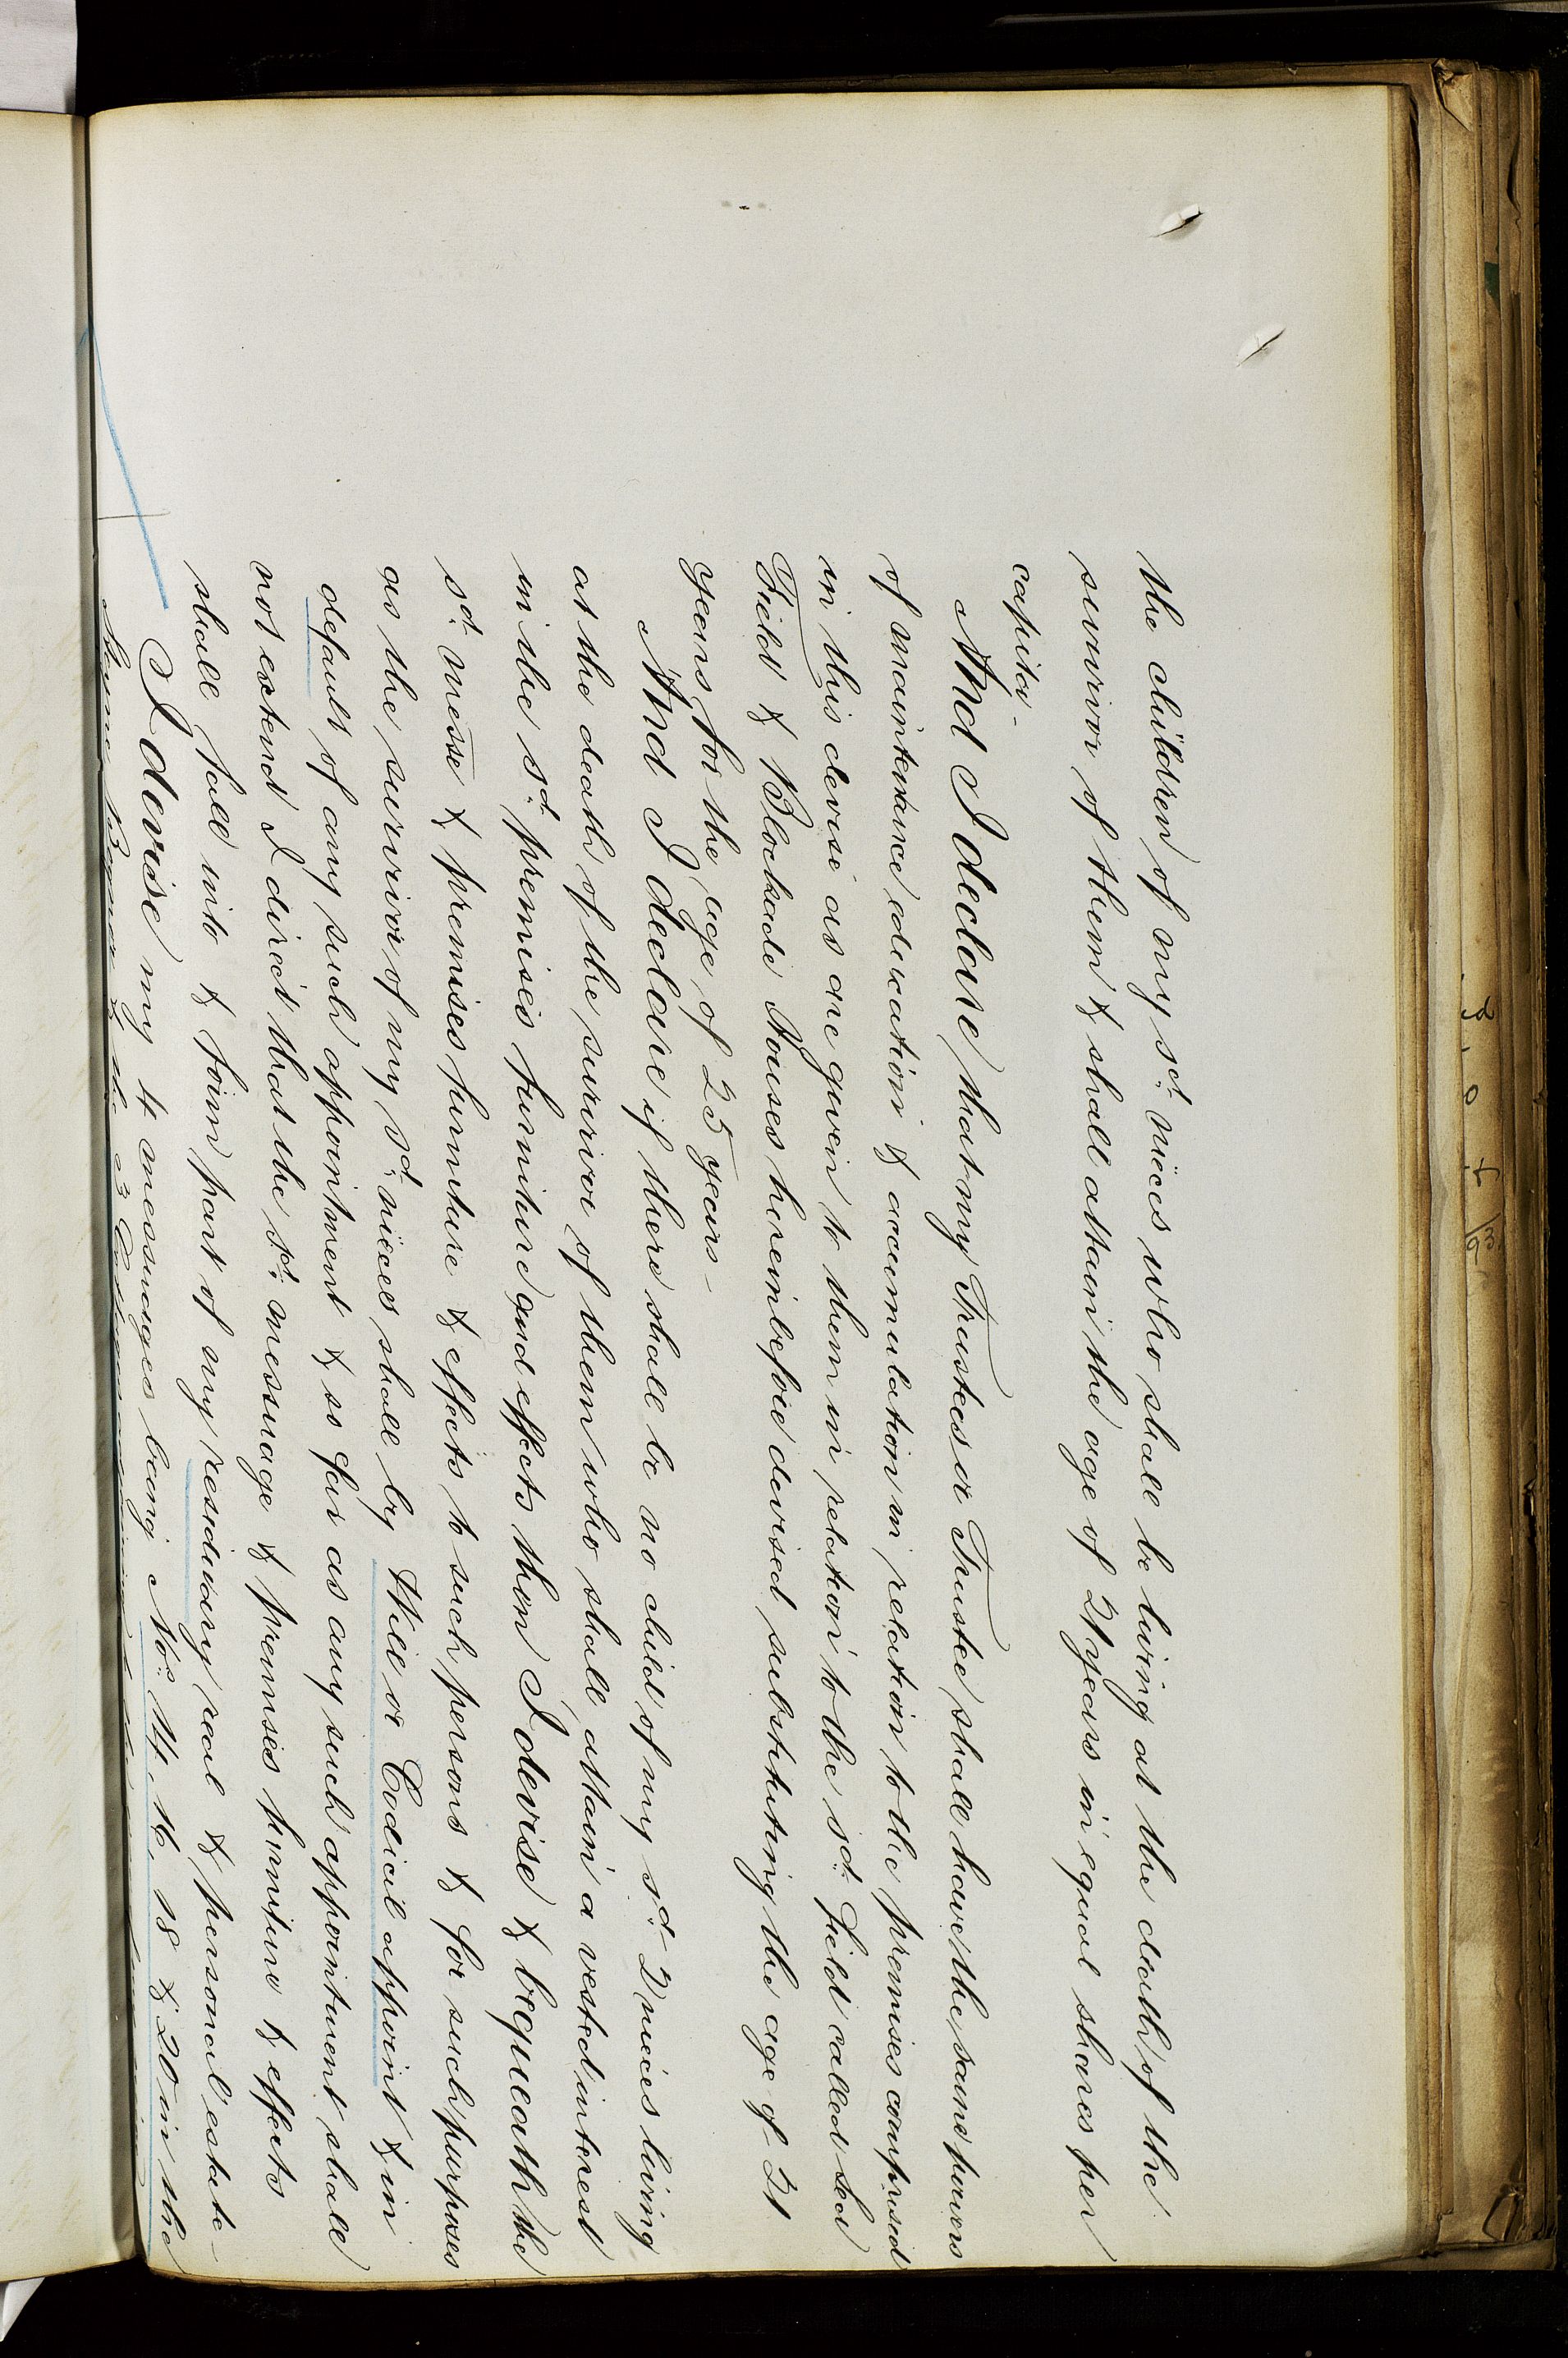 the children of my sd. nieces who shall be living at the death of the
survivor of them & shall attain the age of 21 years in equal shares per
capita -
And I declare that my Trustees or Trustee shall have the same powers
of maintenance education & accumulation in relation to the premises comprised
in this devise as are given to them in relation to the sd. field called Sea
Field & Blockade Houses hereinbefore devised substituting the age of 21
years for the age of 25 years -
And I declare if there shall be no child of my sd. 2 nieces living
at the death of the survivor of them who shall attain a vested interest
in the sd. premises furniture and effects then I devise & bequeath the
sd. messe & premises furniture & effects to such persons & for such purposes
as the survivor of my sd. nieces shall by Will or Codicil appoint & in
default of any such appointment & so far as any such appointment shall
not extend I direct that the sd. messuage & premises furniture & effects
shall fall into & form part of my residuary real & personal estate -
I devise my 4 messuages being Nos. 14. 16. 18 & 20 in the
Bognor & the 3